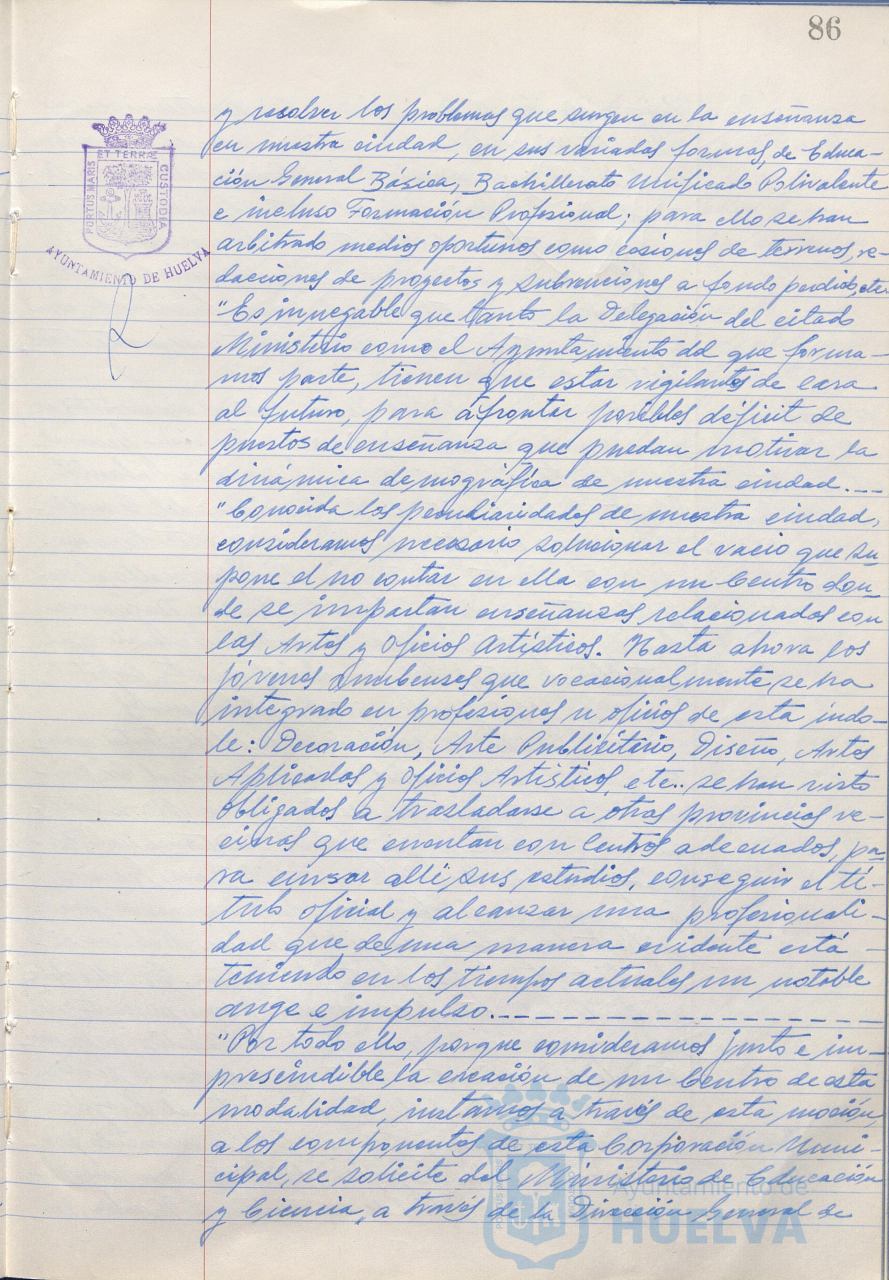 86
PORTUS MARIS
ET TERRÆ
CUSTODIA
AYUNTAMIENTO DE HUELVA
y resolver los problemas que surgen en la enseñanza
en nuestra ciudad, en sus variadas formas, de Educa-
ción General Básica, Bachillerato Unificado Polivalente
e incluso Formación Profesional; para ello se han
arbitrado medios oportunos como cesiones de terrenos, re-
dacciones de proyectos y subvenciones a fondo perdido, etc.
"Es innegable que tanto la Delegación del citado
Ministerio como el Ayuntamiento del que forma-
mos parte, tienen que estar vigilantes de cara
al futuro, para afrontar posibles déficit de
puestos de enseñanza que puedan motivar la
dinámica demográfica de nuestra ciudad.---
"Conocida las peculiaridades de nuestra ciudad,
consideramos necesario solucionar el vacio que su-
pone el no contar en ella con un Centro don-
de se impartan enseñanzas relacionadas con
las Artes y Oficios Artísticos. Hasta ahora los
jóvenes onubenses que vocacionalmente se ha
integrado en profesiones u oficios de esta índo-
le: Decoración, Arte Publicitario, Diseño, Artes
Aplicadas y Oficios Artísticos, etc.. se han visto
obligados a trasladarse a otras provincias ve-
cinas que cuentan con Centros adecuados, pa-
ra cursar allí sus estudios, conseguir el tí-
tulo oficial y alcanzar una profesionali-
dad que de una manera evidente está
teniendo en los tiempos actuales un notable
auge e impulso.------------------
"Por todo ello, porque consideramos justo e im-
prescindible la creación de un Centro de esta
modalidad, instamos a través de esta moción,
a los componentes de esta Corporación Muni-
cipal, se solicite del Ministerio de Educación
y Ciencia, a través de la Dirección General de
Ayuntamiento de
HUELVA